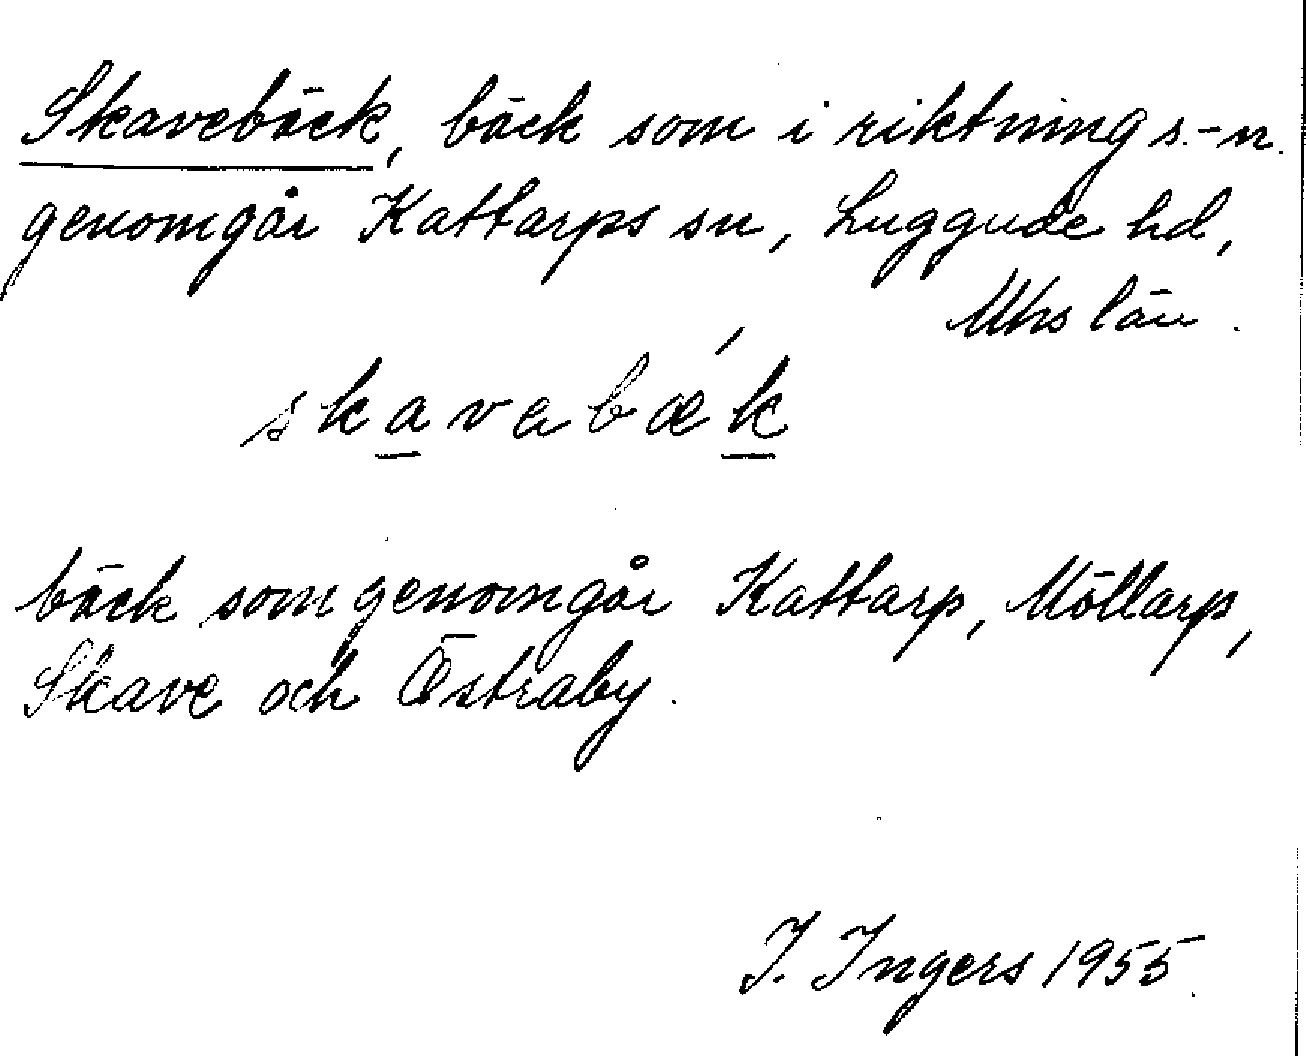 Skavebäck, bäck som i riktning s.-n.
genomgår Kattarps sn, Luggude hd,
Mhs län.
skavabæ´k
bäck som genomgår Kattarp, Möllarp,
Skave och Östraby.
I. Ingers 1955.